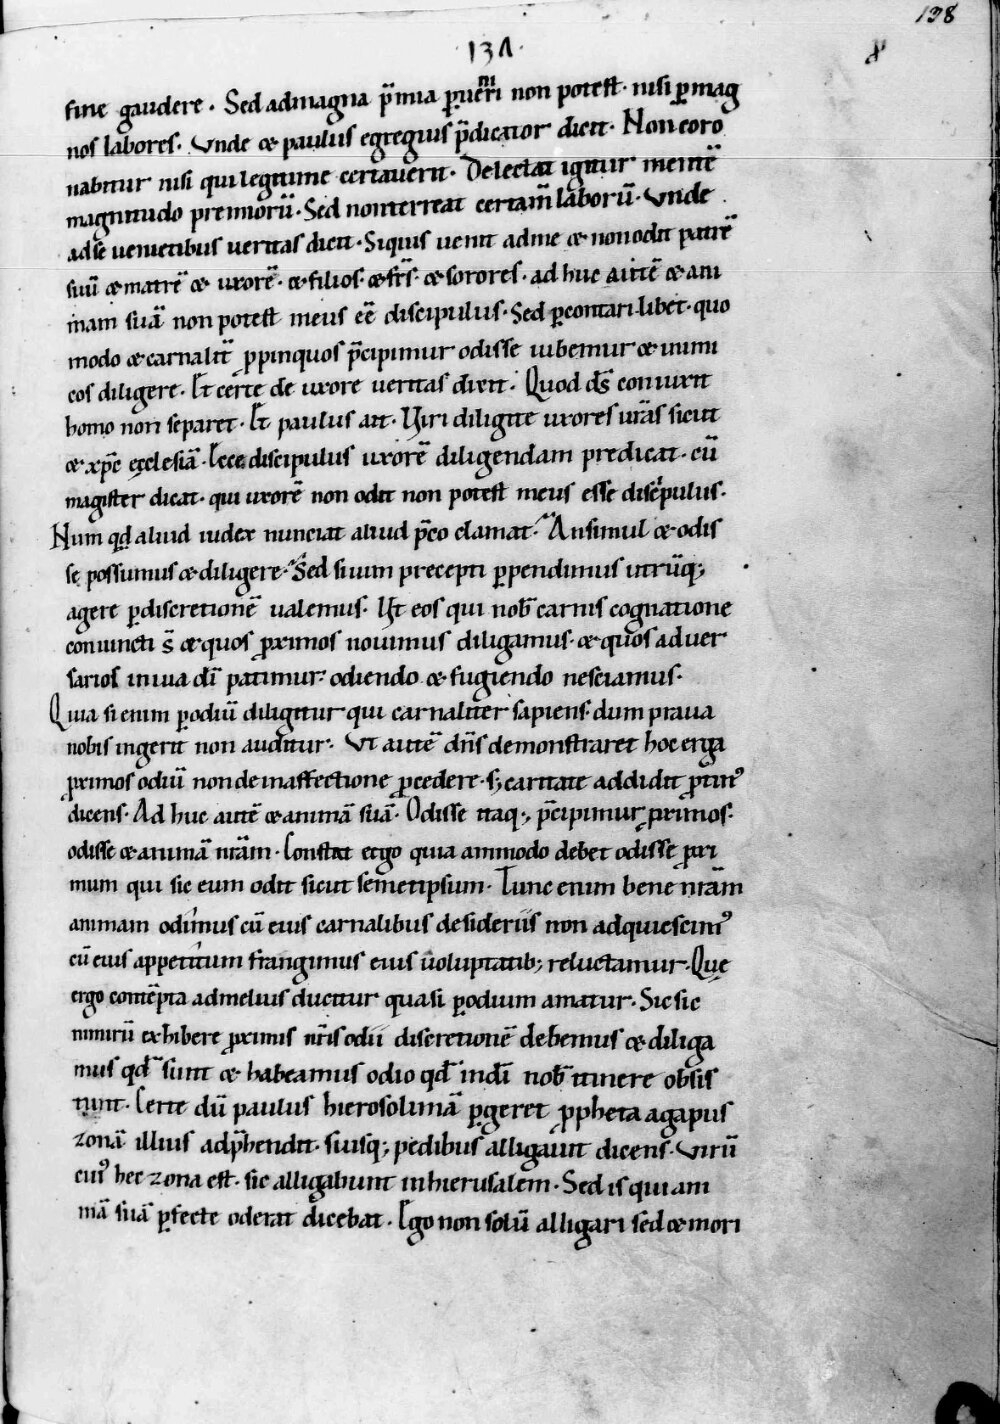 138
·137·
fine gaudere. Sed admagna p̄mia ꝑueniri non potest· nisi ꝑmag
nos labores. Vnde & paulus egregius p̄dicator dicit. Non coro
nabitur nisi qui legitime certauerit. Delectat igitur mentē
magnitudo premiorū. Sed nonterreat certam̄ laborū. Vnde
adse uenietibus ueritas dicit. Siquis uenit adme & nonodit patrē
suū & matrē & uxorē. & filios. & frīs. & sorores. ad huc autē & ani
mam suā non potest meus eē discipulus. Sed ꝑcontari libet. quo
modo & carnalit̄ ꝓpinquos p̄cipimur odisse iubemur & inimi
cos diligere. Et certe de uxore ueritas dicit. Quod ds̄ coniuxit
homo non separet. Et paulus ait. Uiri diligite uxores ur̄as sicut
& xp̄c ęcclesiā. Ecce discipulus uxorē diligendam predicat. cū
magister dicat. qui uxorē non odit non potest meus esse discipulus.
Num qd̄ aliud iudex nunciat aliud p̄co clamat. An simul & odis
se possumus & diligere. Sed si uim precepti ꝑpendimus utrūq;
agere ꝑdiscretionē ualemus. Ut eos qui nob̄ carnis cognatione
coniuncti s̄ & quos ꝓximos nouimus diligamus. & quos aduer
sarios in uia dī patimur. odiendo & fugiendo nesciamus.
Quia si enim ꝑodiū diligitur qui carnaliter sapiens. dum praua
nobis ingerit non auditur. Vt autē dn̄s demonstraret hoc erga
ꝓximos odiū nonde inaffectione ꝓcedere. s; caritate addidit ꝓtin᾽
dicens. Ad huc autē & animā suā. Odisse itaq;, p̄cipimur ꝓximos.
odisse & animā nr̄am. Constat ergo quia ammodo debet odisse ꝓxi
mum qui sic eum odit sicut semetipsum. Tunc enim bene nr̄am
animam odimus cū eius carnalibus desideriis non adquiescim᾽
cū eius appetitum frangimus eius uoluptatib; reluctamur. Quę
ergo contēpta admelius ducitur quasi ꝑodium amatur. Sic sic
nimirū exhibere ꝓximis nr̄is odii discretionē debemus & diliga
mus qd̄ sunt & habeamus odio qd̄ indī nob̄ itinere obsis
tunt. Certe dū paulus hierosolimā ꝑgeret ꝓpheta agapus
zonā illius adp̄hendit. suisq; pedibus alligauit dicens. Virū
cui᾽ hec zona est. sic alligabunt inhierusalem. Sed is qui am
mā suā ꝑfecte oderat dicebat. Ego non solū alligari sed & mori